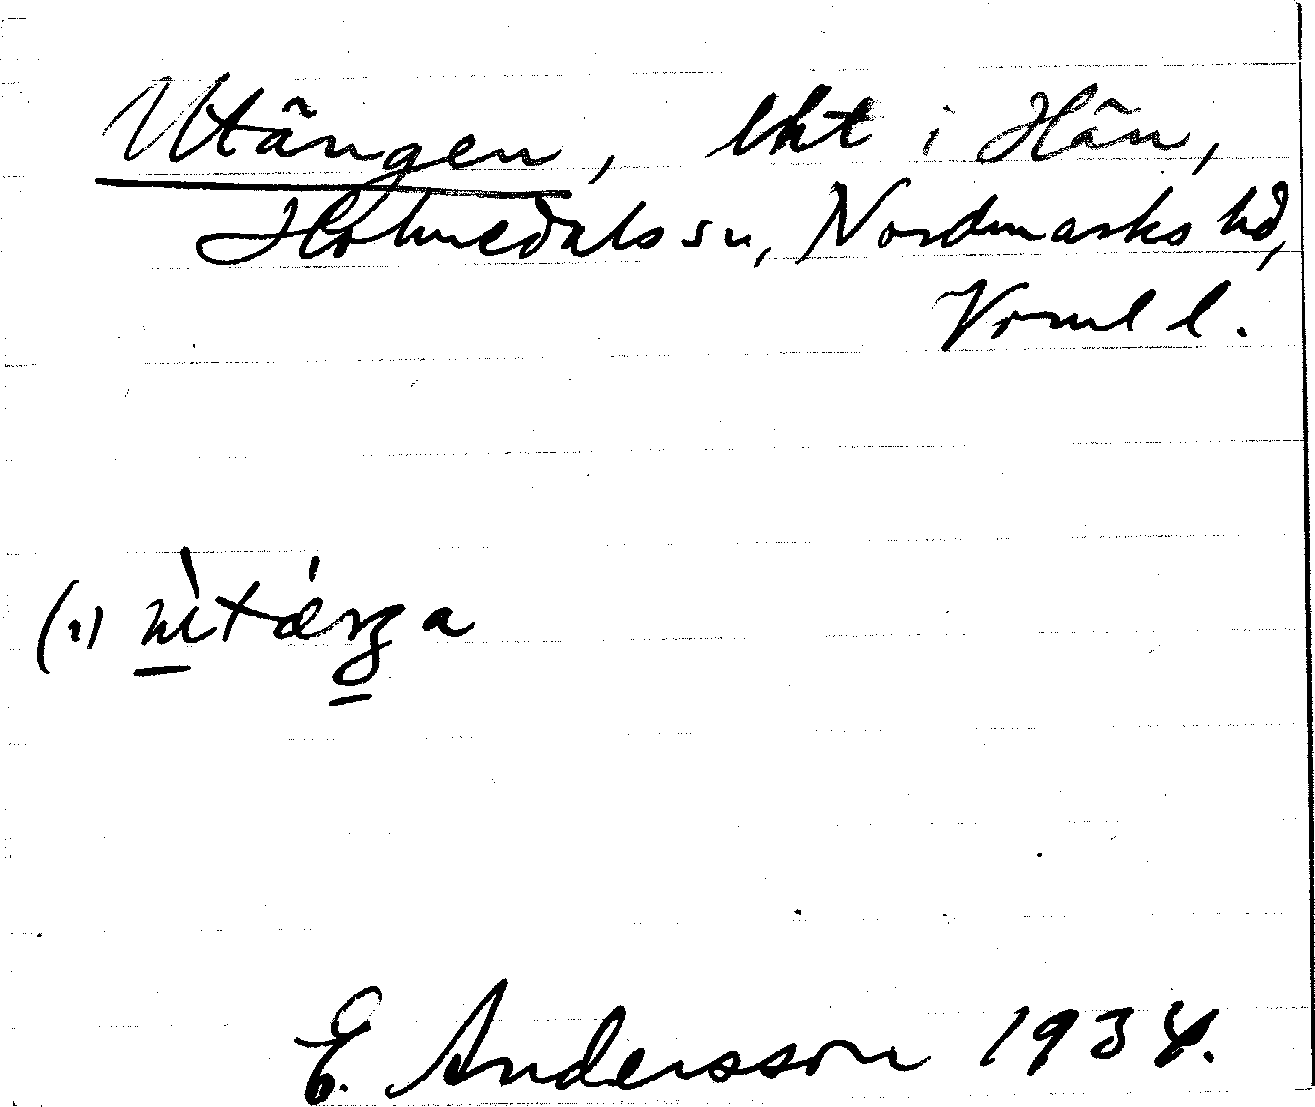 Utängen, lht i Hän,
Holmedals sn, Nordmarks hd,
Vrml l.
(1)
E. Andersson 1934.